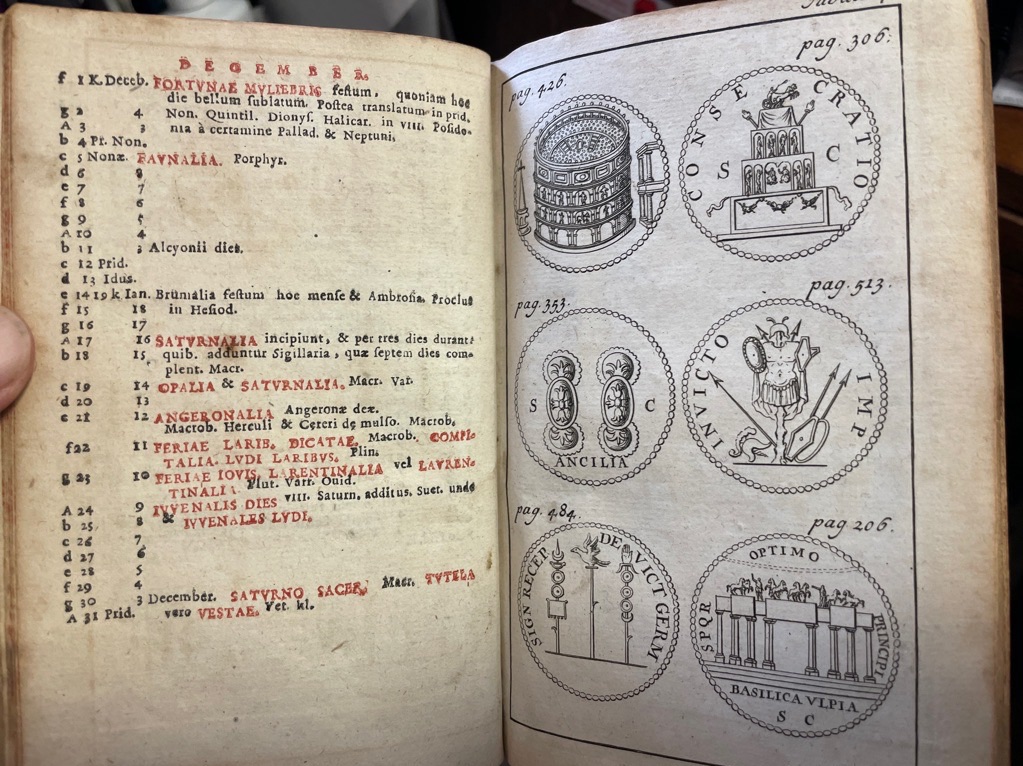 DECEMBER.
f 1 K. Deceb. FORTVNAE MVLIEBRIS festum, quoniam hoc
die bellum sublatum. Postea translatum in prid.
g 2 4 Non. Quintil. Dionys. Halicar. in VIII. Posido-
A 3 3 nia à certamine Pallad. & Neptuni.
b 4 Pr. Non.
c 5 Nonæ. FAVNALIA. Porphyr.
d 6 8
e 7 7
f 8 6
g 9 5
A 10 4
b 11 3 Alcyonii dies.
c 12 Prid.
d 13 Idus.
e 14 19 k Ian. Brumalia festum hoc mense & Ambrosia. Proclus
f 15 18 in Hesiod.
g 16 17
A 17 16 SATVRNALIA incipiunt, & per tres dies durant:
b 18 15 quib. adduntur Sigillaria, quæ septem dies com-
plent. Macr.
c 19 14 OPALIA & SATVRNALIA. Macr. Var.
d 20 13
e 21 12 ANGERONALIA Angeronæ deæ.
Macrob. Herculi & Cereri de mulso. Macrob.
f 22 11 FERIAE LARIB. DICATAE. Macrob. COMPI-
TALIA. LVDI LARIBVS. Plin.
g 23 10 FERIAE IOVIS. LARENTINALIA vel LAVREN-
TINALIA. Plut. Varr. Ovid.
A 24 9 IVVENALIS DIES VIII. Saturn. additus. Suet. unde
b 25 8 & IVVENALES LVDI.
c 26 7
d 27 6
e 28 5
f 29 4
g 30 3 December. SATVRNO SACER. Macr. TVTELA
A 31 Prid. vero VESTAE. Vet. kl.
pag. 426.
pag. 306.
CONSECRATIO
S C
pag. 353.
S C
ANCILIA
pag. 513.
INVICTO IMP
pag. 484.
SIGN RECEP DE VICT GERM
pag 206.
OPTIMO
SPQR
PRINCIPI
BASILICA VLPIA
S C